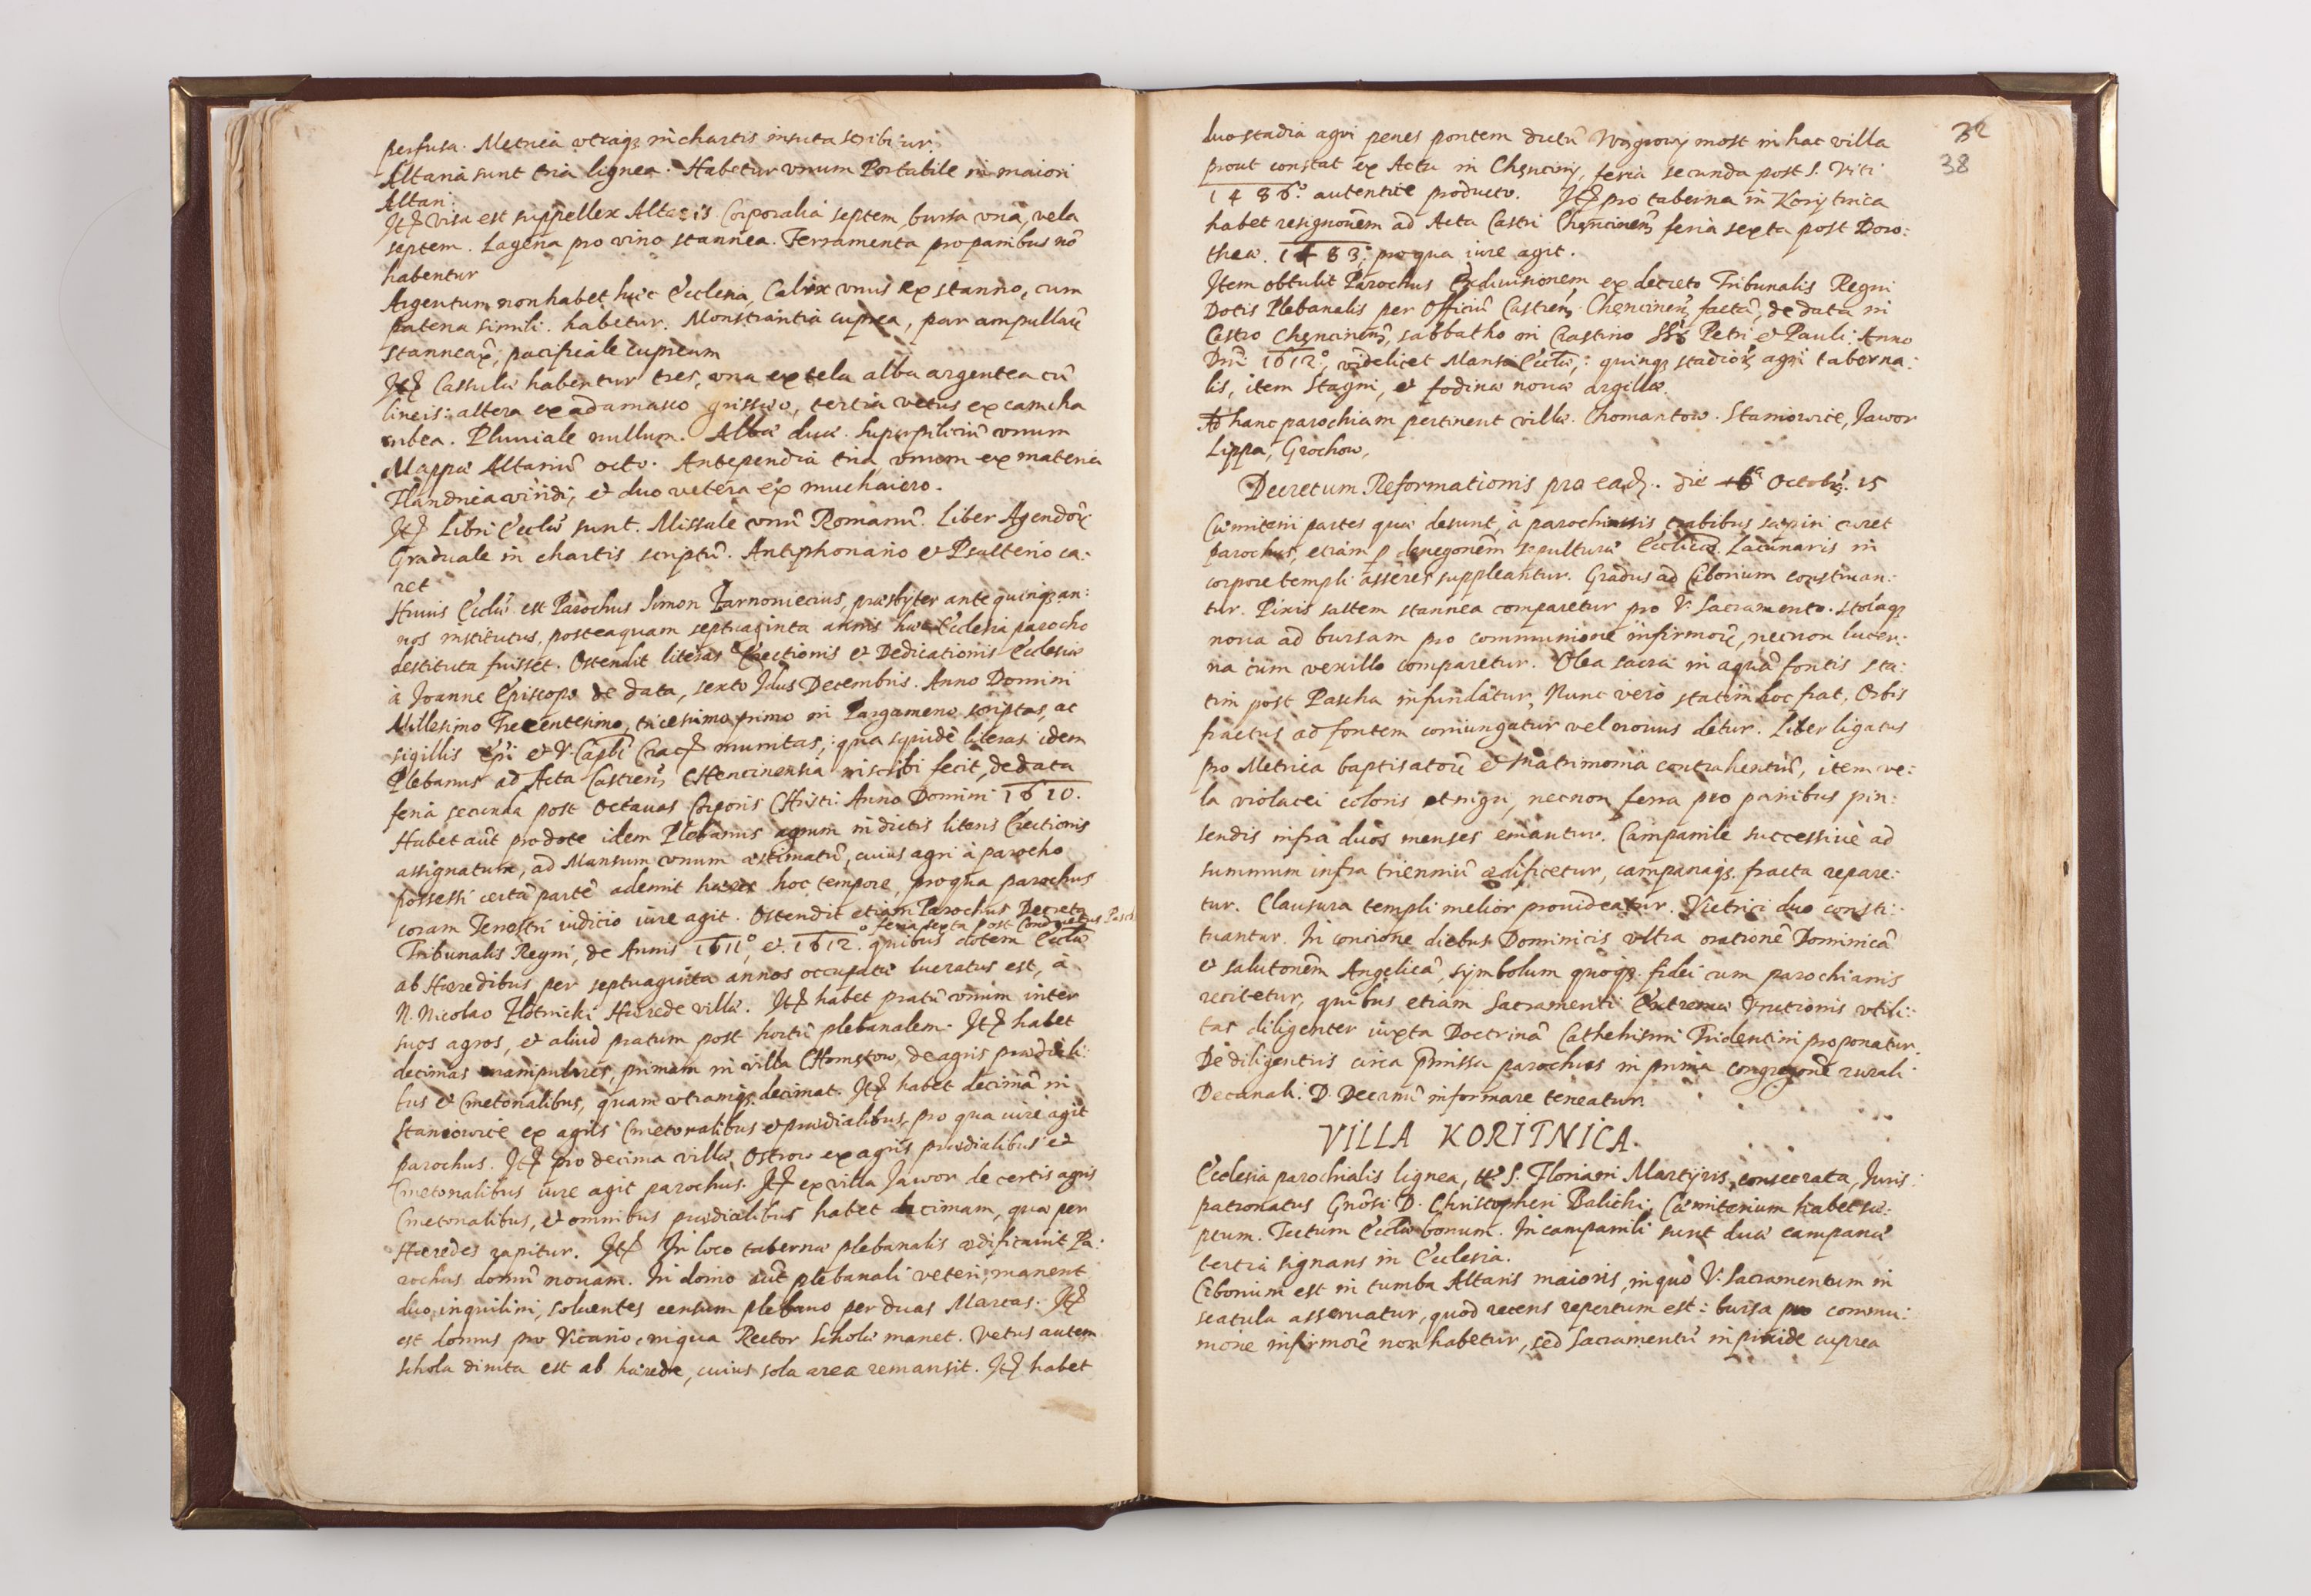 perfusa. Metrica vtraq3 in chartis insuta scribitur.
Altaria sunt tria lignea. Habetur vnum Portabile in maiori
Altari.
Itẽ visa est suppellex Altaris. Corporalia septem, bursa vna, vela
septem. Lagena pro vino stannea. Ferramenta pro panibus nõ
habentur
Argentum non habet hæc Ecclesia, Calix vnus ex stanno, cum
patena simili. habetur. Monstrantia cuprea, par ampullarũ
stannearũ, pacificale cupreum
Itẽ Casulæ habentur tres, vna ex tela alba argentea cũ
lineis: altera ex adamasco grisseo, tertia vetus ex camcha
rubea. Pluuiale nullum. Albæ duæ. Superpiliciũ vnum
Mappæ Altariũ octo. Antependia tria, vnum ex materia
Flandrica viridi, et duo vetera ex muchaiero.
Itẽ Libri Eccliæ sunt. Missale vnũ Romanũ. Liber Agendorũ
Graduale in chartis scriptũ. Antiphonario et Psalterio ca:
ret
Huius Eccliæ est Parochus Simon Tarnoniecius, præsbyter ante quinq3 an:
nos institutus, posteaquam septuaginta annis hæc Ecclesia parocho
destituta fuisset. Ostendit literas Erectionis et Dedicationis Ecclesiæ
à Joanne Episcopo de data, sexto Idus Decembris. Anno Domini
Millesimo Trecentesimo, tricesimo primo in Pargameno scriptas, ac
sigillis Epi et V. Capli Crac. munitas, quas siquidẽ literas idem
Plebanus ad Acta Castreñ. Chencinensia inscribi fecit, de data
feria secunda post Octauas Corporis Christi Anno Domini 1610.
Habet aũt pro dote idem Plebanus agrum in dictis literis Erectionis
assignatum, ad Mansum vnum æstimatũ, cuius agri à parocho
possessi certã partẽ ademit hæres hoc tempore, pro qua parochus
coram Terrestri iudicio iure agit. Ostendit etiam Parochus Decreta
feria sexta post Conductus Pasch
Tribunalis Regni, de Annis 1611º, et 1612º quibus dotem Eccliæ
ab Hæredibus per septuaginta annos occupatã lucratus est, à
N. Nicolao Zlotnicki Hærede villæ. Itẽ habet pratũ vnum inter
suos agros, et aliud pratum post hortũ plebanalem. Itẽ habet
decimas manipulares, primam in villa Chomstow, de agris prædiali:
bus et Cmetonalibus, quam vtramq3 decimat. Itẽ habet decimã in
Staniowice ex agris Cmetonalibus et prædialibus, pro qua iure agit
parochus. Itẽ pro decima villæ Ostrow ex agris prædialibus et
Cmetonalibus iure agit parochus. Itẽ ex villa Jawor de certis agris
Cmetonalibus, et omnibus prædialibus habet decimam, quæ per
Hæredes rapitur. Itẽ In loco tabernæ plebanalis ædificauit Pa:
rochus domũ nouam. In domo aũt plebanali veteri, manent
duo inquilini, soluentes censum plebano per duas Marcas. Itẽ
est domus pro Vicario, in qua Rector Scholæ manet. Vetus autem
Schola diruta est ab hærede, cuius sola area remansit. Itẽ habet
32
38
duo stadia agri penes pontem dictũ Wẹgrowy most in hac villa
prout constat ex Actu in Chenciny, feria secunda post S. Viti
1486º. autentice producto. Itẽ pro taberna in Korytnica
habet resignonẽm ad Acta Castri Chencineñ feria sexta post Doro:
theæ. 1483; pro qua iure agit.
Item obtulit Parochus Exdiuisionem ex decreto Tribunalis Regni
Dotis Plebanalis per Officiũ Castreñ. Chencineñ factã, de data in
Castro Chencineñ, sabbatho in Crastino SS. Petri et Pauli. Anno
Dni 1612º, videlicet Mansi Eccliæ, quinq3 stadiorũ agri taberna:
lis, item Stagni, et fodinæ nouæ argillæ.
Ad hanc parochiam pertinent villæ. Chomantow. Staniowice, Jawor
Lippa, Grochow,
Decretum Reformationis pro ead. die Octobris. 15
Cæmiterii partes quæ desunt, à parochianis trabibus sæpiri curet
parochus, etiam p denegonẽm sepulturæ Eccliæ. Lacunaris in
corpore templi asseres suppleantur. Gradus ad Ciborium construan:
tur. Pixis saltem stannea comparetur pro V. Sacramento. stolaq3
noua ad bursam pro communione infirmorũ, necnon lucer:
na cum vexillo comparetur. Olea sacra in aquã fontis sta:
tim post Pascha infundãtur, Nunc verò statim hoc fiat. Orbis
fractus ad fontem coniungatur vel nouus detur. Liber ligatus
pro Metrica baptisatorũ et matrimonia contrahentiũ, item ve:
la violacei coloris et nigri, necnon ferra pro panibus pin:
sendis infra duos menses emantur. Campanile successiuè ad
summum infra trienniũ ædificetur, campanaq3 fracta repare:
tur. Clausura templi melior prouideatur. Vitrici duo consti:
tuantur. In concione diebus Dominicis vltra orationẽ Dominicã
et salutonẽm Angelicã, symbolum quoq3 fidei cum parochianis
recitetur, quibus etiam Sacramenti Extremæ Vnctionis vtili:
tas diligenter iuxta Doctrinã Cathehismi Tridentini proponatur.
De diligentiis circa p̃missa parochus in prima congregonẽ rurali
Decanali. D. Decanũ informare teneatur.
VILLA KORITNICA.
Ecclesia parochialis lignea, S. Floriani Martyris, consecrata, Juris
patronatus Gnosi D. Christopheri Balicki, Cæmiterium habet sæ:
ptum. Tectum Eccliæ bonum. In campanili sunt duæ campanæ
tertia signans in Ecclesia.
Ciborium est in tumba Altaris maioris, in quo V. Sacramentum in
scatula asseruatur, quod recens repertum est: bursa pro commu:
nione infirmorũ non habetur, sed Sacramentũ in pixide cuprea